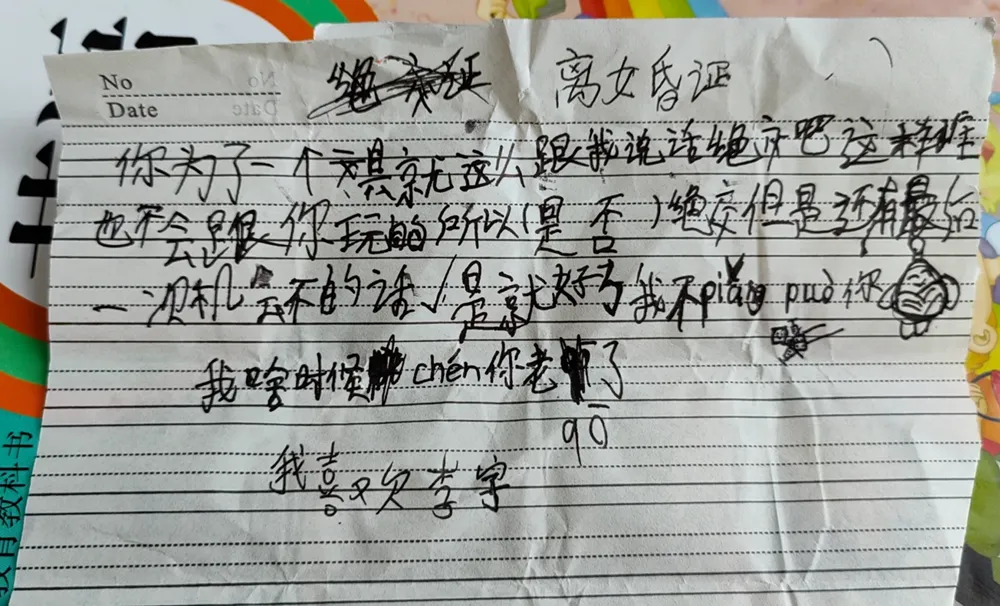 No
Date
绝交证 离女昏证
你为了一个文具就这么跟我说话绝交吧这样谁
也不会跟你玩的所以(是 否)绝交但是还有最后
一次机会不的话√是就好了我不piàng può你
我啥时候chén你老了
qō
我喜欢李字
教育教科书